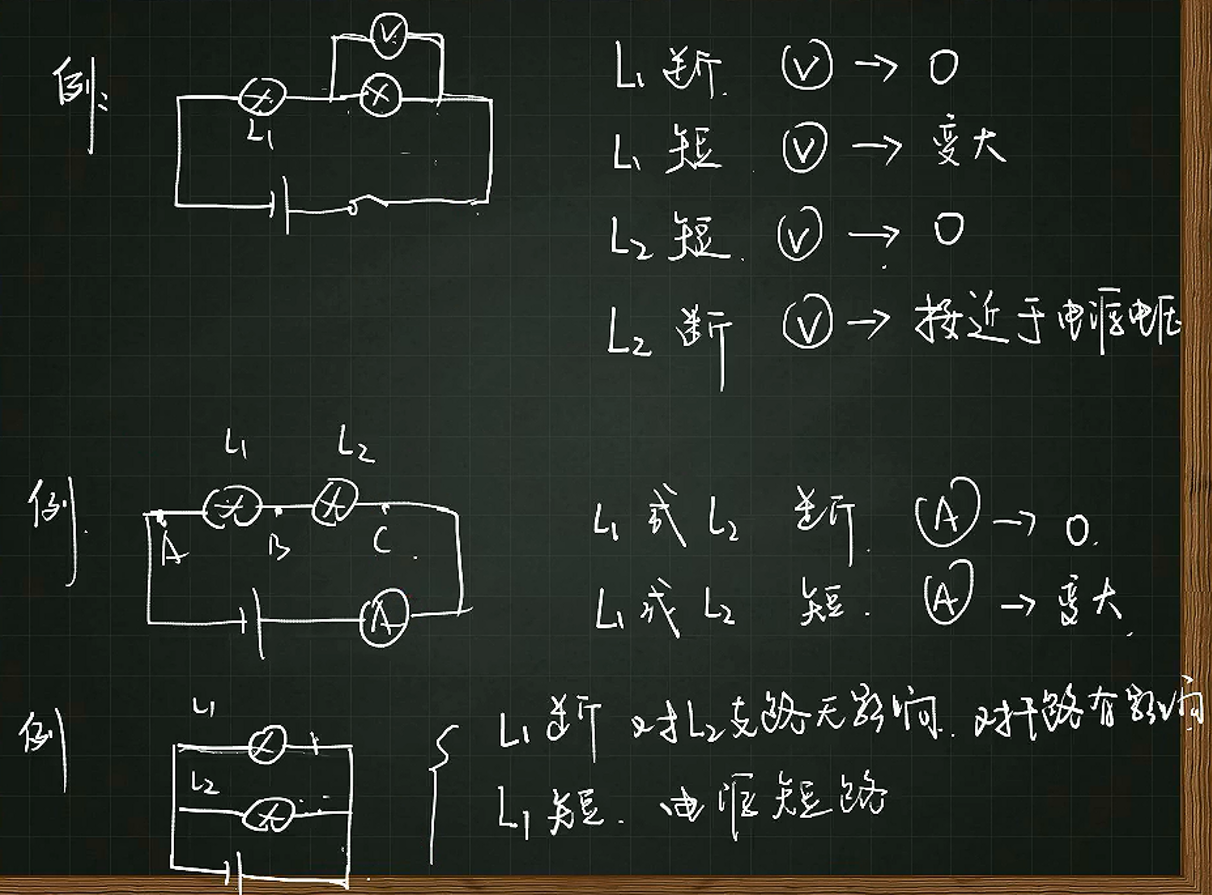 例:
V
L₁
L₁断. V → 0
L₁短 V → 变大
L₂短. V → 0
L₂断 V → 接近于电源电压
例.
L₁ L₂
A B C
A
L₁或L₂ 断. A → 0.
L₁或L₂ 短. A → 变大.
例
L₁
L₂
L₁断 对L₂支路无影响. 对干路有影响
L₁短. 电源短路